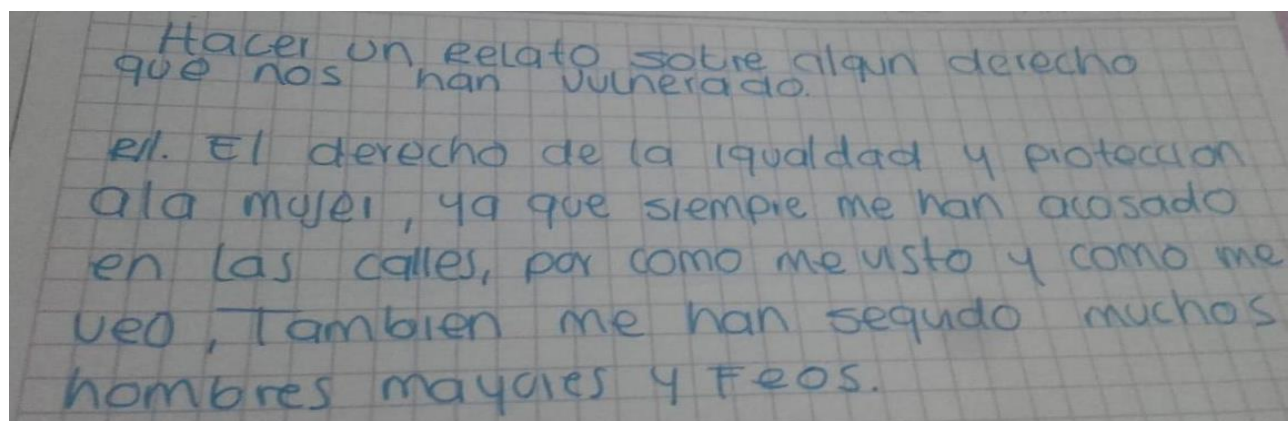 Hacer un Relato sobre algun derecho
que nos han vulnerado.
El derecho de la igualdad y proteccion
ala mujer, ya que siempre me han acosado
en las calles, por como me visto y como me
veo, Tambien me han seguido muchos
hombres mayores y Feos.